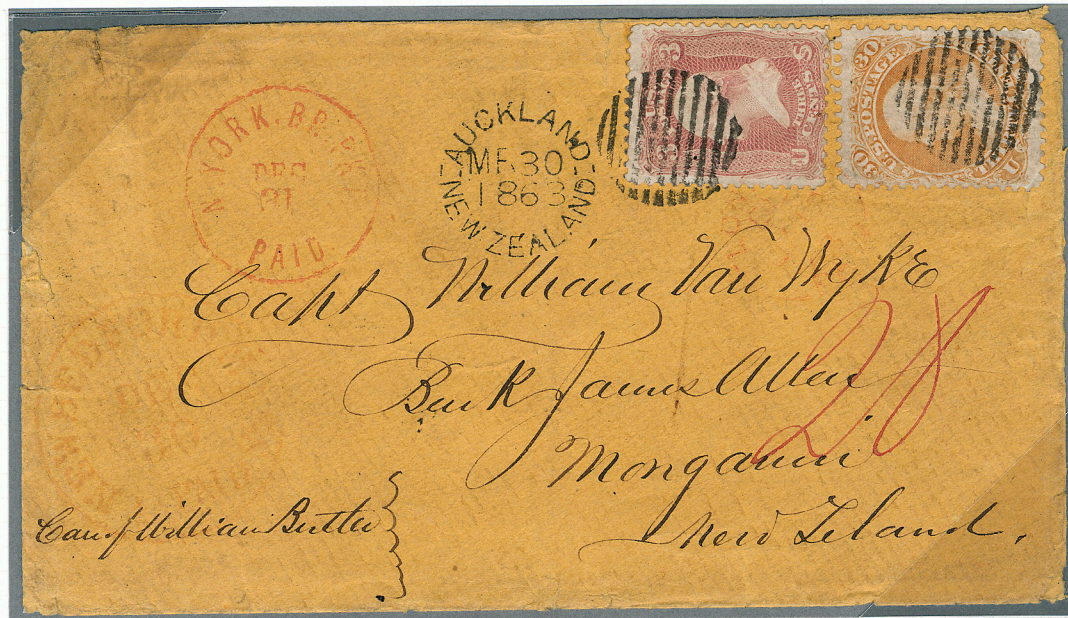 N. YORK. BR. PKT
DEC
31
PAID
AUCKLAND
MR 30
1863
NEW ZEALAND
3
U.S.
UNITED STATES
30
30
U.S. POSTAGE
Capt William Van WyKE
Bark James Allen
28
Mongauui
New Zeland.
Care of William Butler
NEW BEDFORD